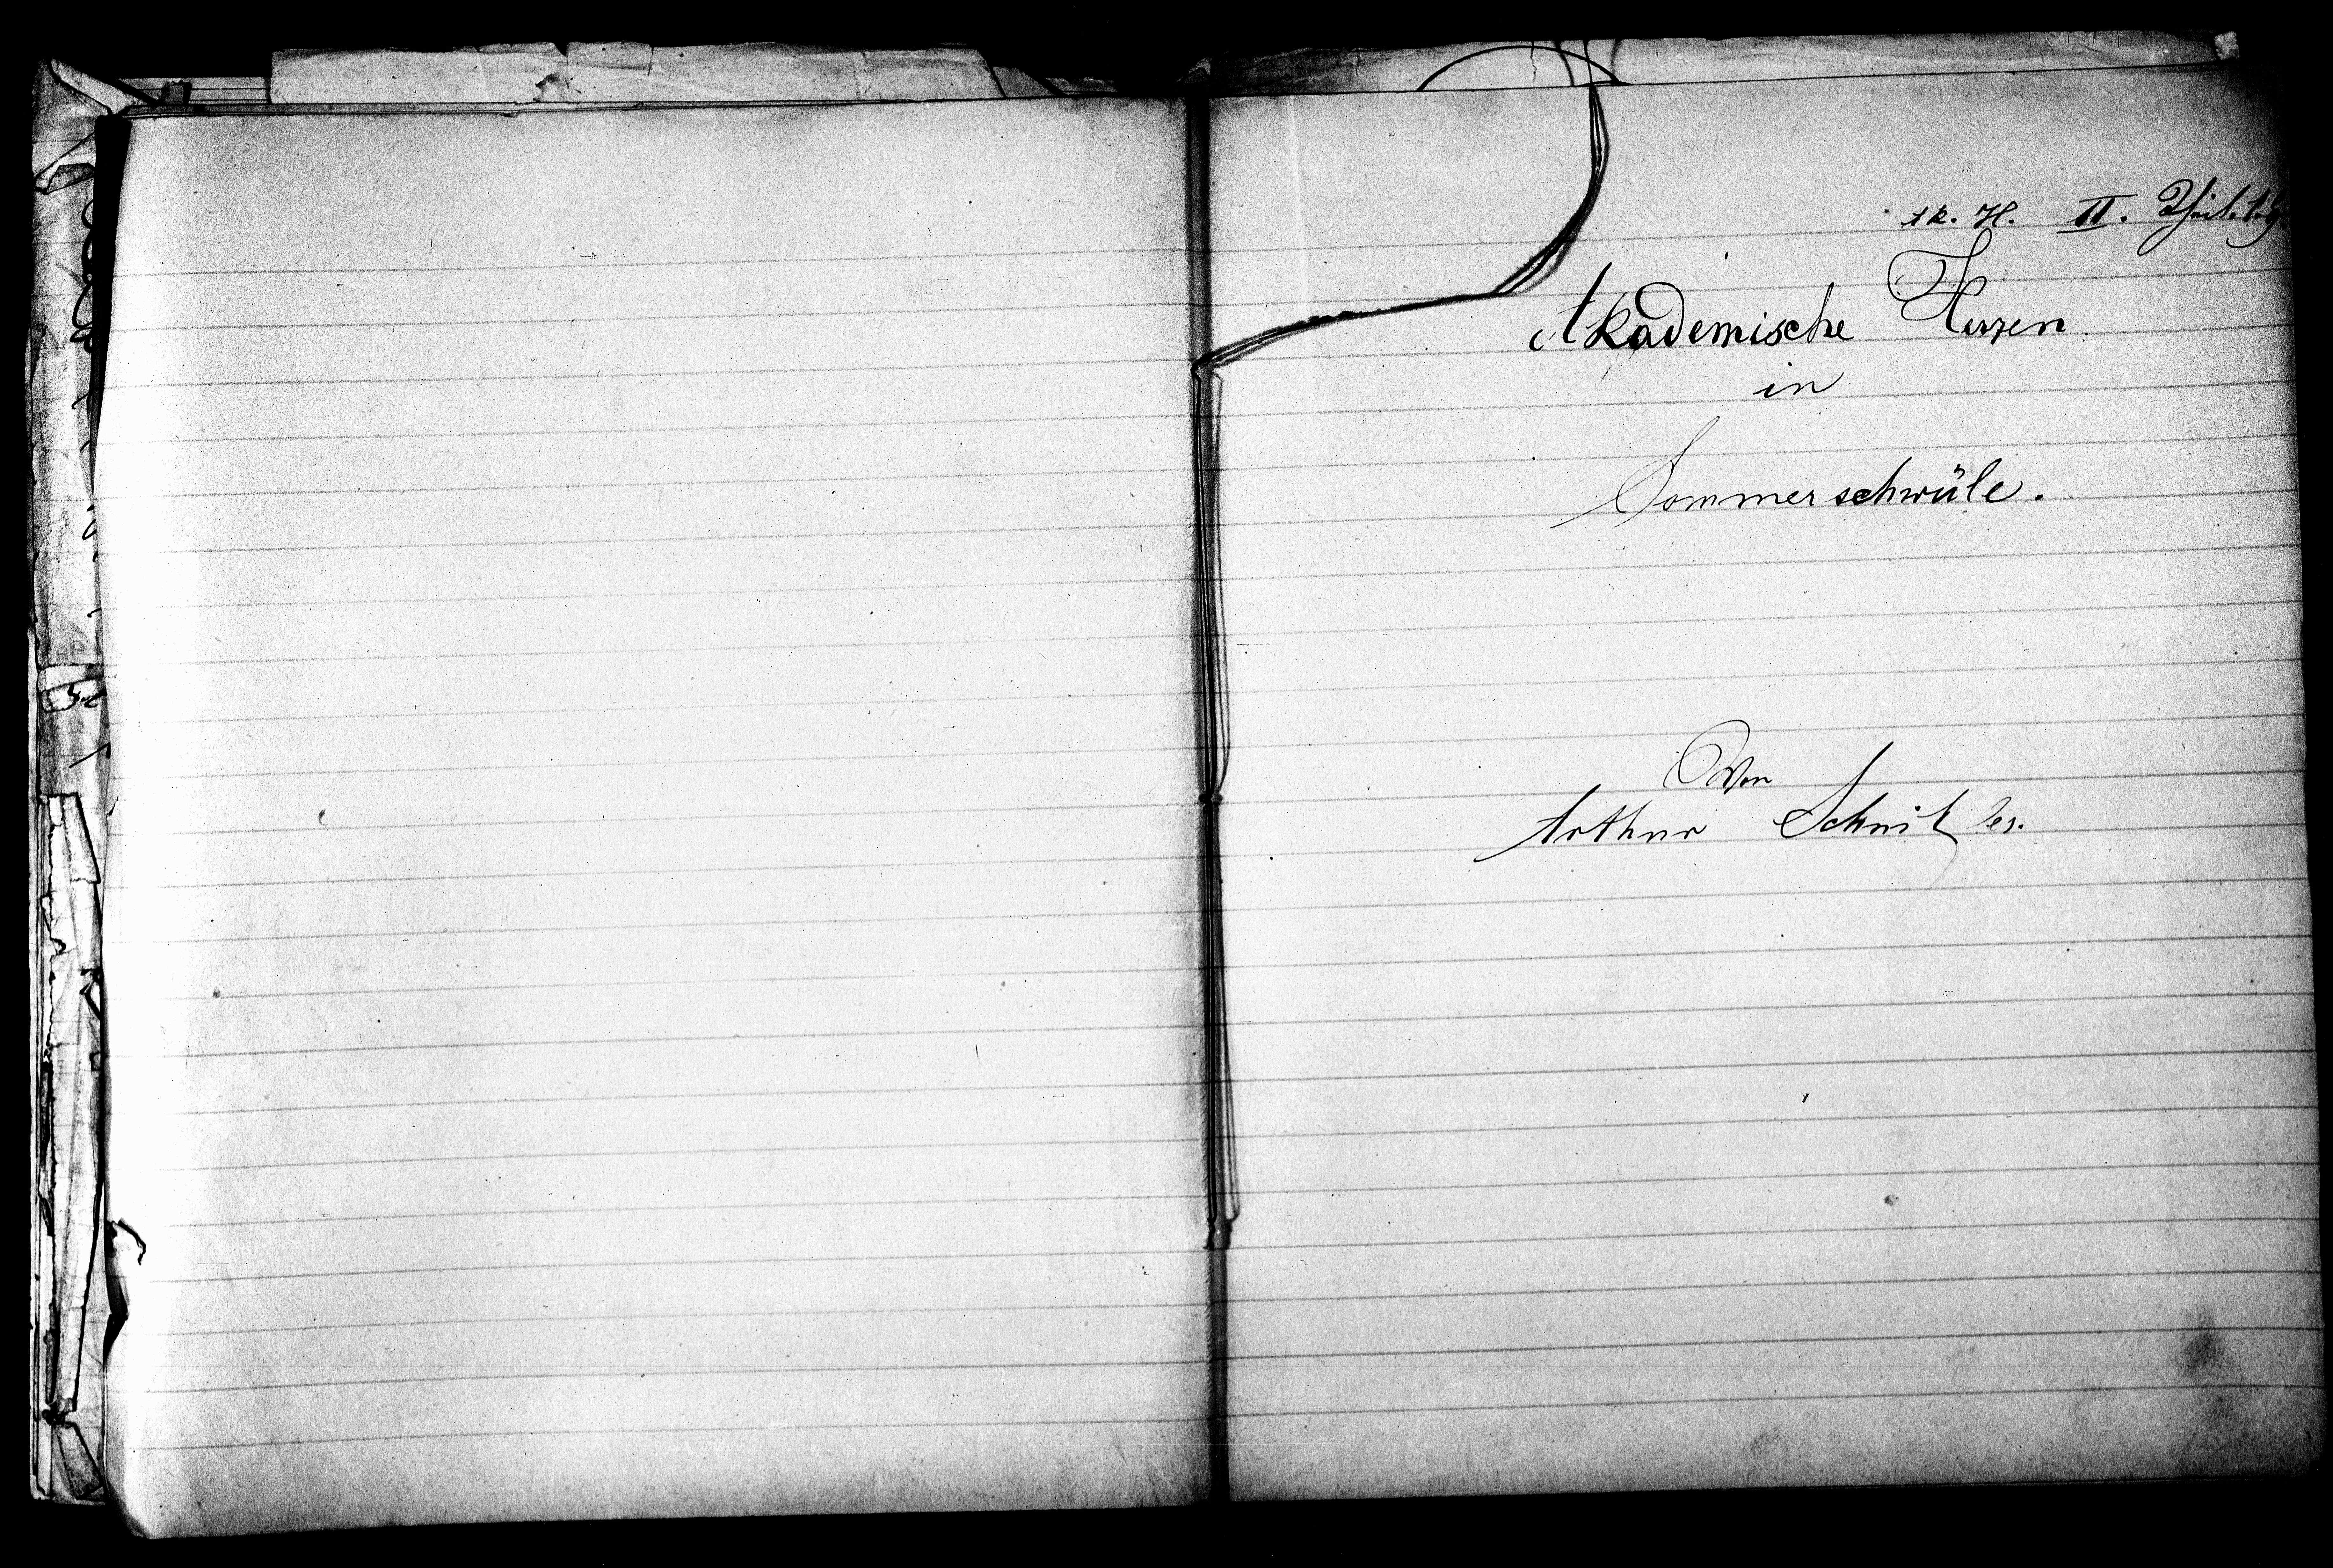 Ak. H. II. Theil.
Akademische Herzen
in
Sommerschwüle.
Von
Arthur Schnitzler.